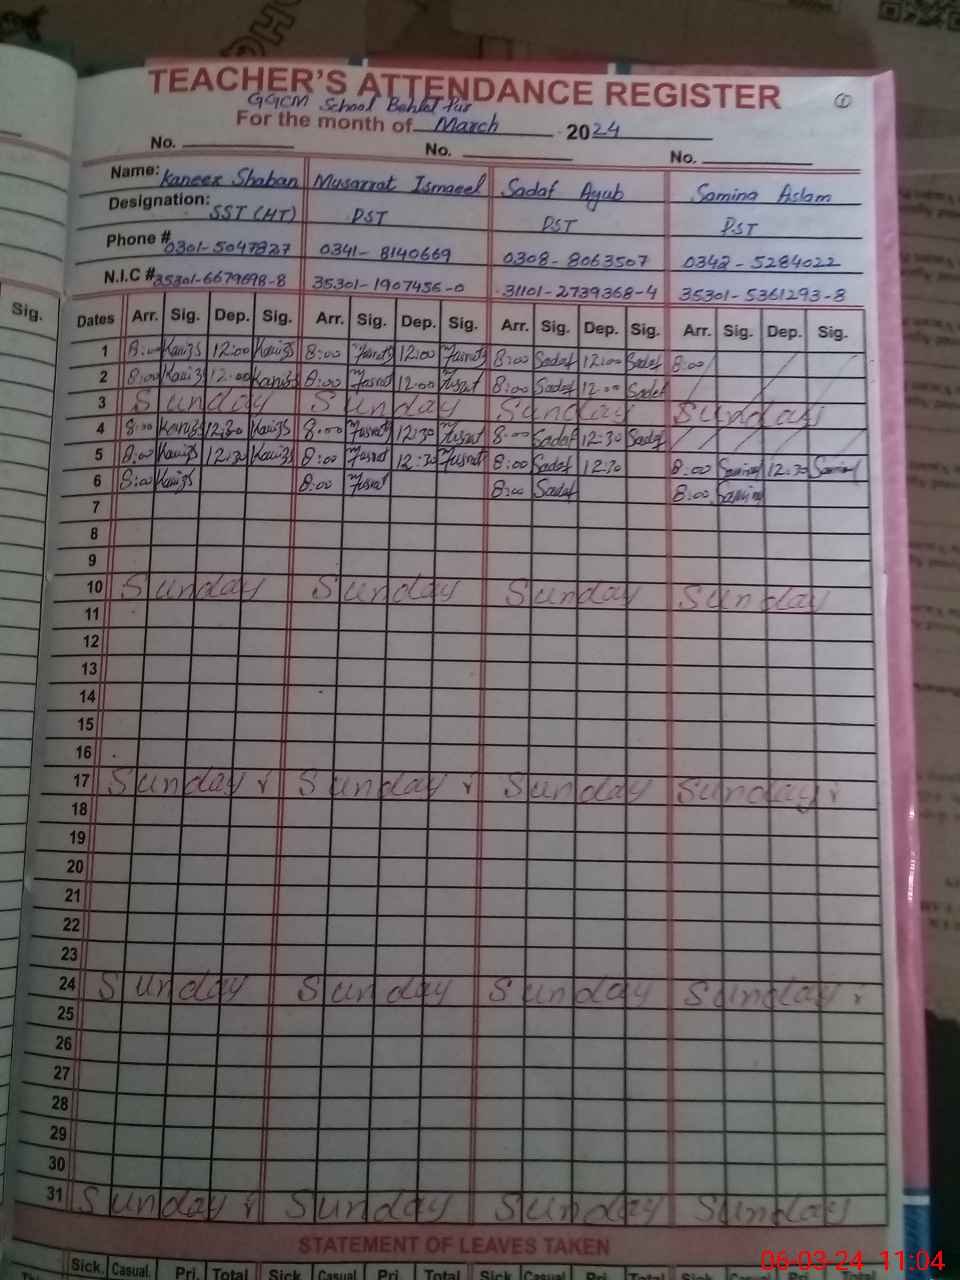 Sig.
TEACHER'S ATTENDANCE REGISTER
GGCM School Bahlol Pur
For the month of March 2024
No. No. No.
Name: Kaneez Shaban Musarrat Ismaeel Sadaf Ayub Samina Aslam
Designation: SST (HT) PST PST PST
Phone # 0301-5047827 0341-8140669 0308-8063507 0342-5284022
N.I.C # 35301-6679698-8 35301-1907456-0 31101-2739368-4 35301-5361293-8
Dates Arr. Sig. Dep. Sig. Arr. Sig. Dep. Sig. Arr. Sig. Dep. Sig. Arr. Sig. Dep. Sig.
1 8:00 12:00 8:00 12:00 8:00 Sadaf 12:00 Sadaf 8:00
2 8:00 12:00 8:00 12:00 8:00 Sadaf 12:00 Sadaf
3 Sunday Sunday Sunday Sunday
4 8:00 12:30 8:00 12:30 8:00 Sadaf 12:30 Sadaf
5 8:00 12:30 8:00 12:30 8:00 Sadaf 12:30 8:00 12:30
6 8:00 8:00 8:00 Sadaf 8:00
7
8
9
10 Sunday Sunday Sunday Sunday
11
12
13
14
15
16
17 Sunday Sunday Sunday Sunday
18
19
20
21
22
23
24 Sunday Sunday Sunday Sunday
25
26
27
28
29
30
31 Sunday Sunday Sunday Sunday
STATEMENT OF LEAVES TAKEN
Sick. Casual. Pri. Total Sick. Casual Pri. Total Sick Casual Pri. Total Sick. Casual Pri. Total
06-03-24 11:04